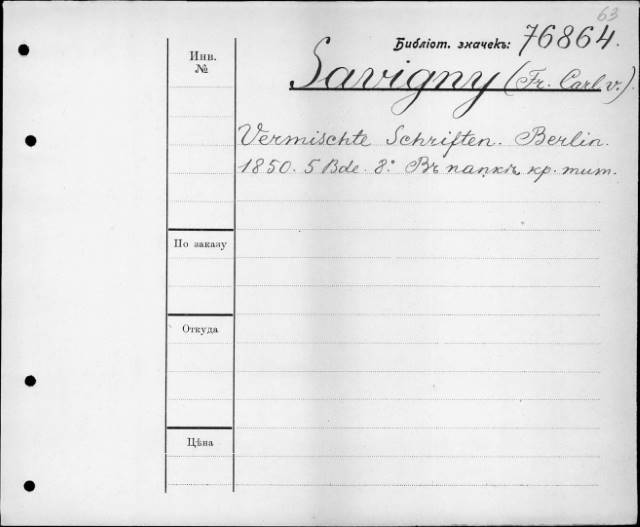 63
Библіот. значекъ: 76864.
Инв. №
Savigny (Fr. Carl v.).
Vermischte Schriften. Berlin.
1850. 5 Bde. 8.° Въ папкѣ, кр. тит.
По заказу
Откуда
Цѣна